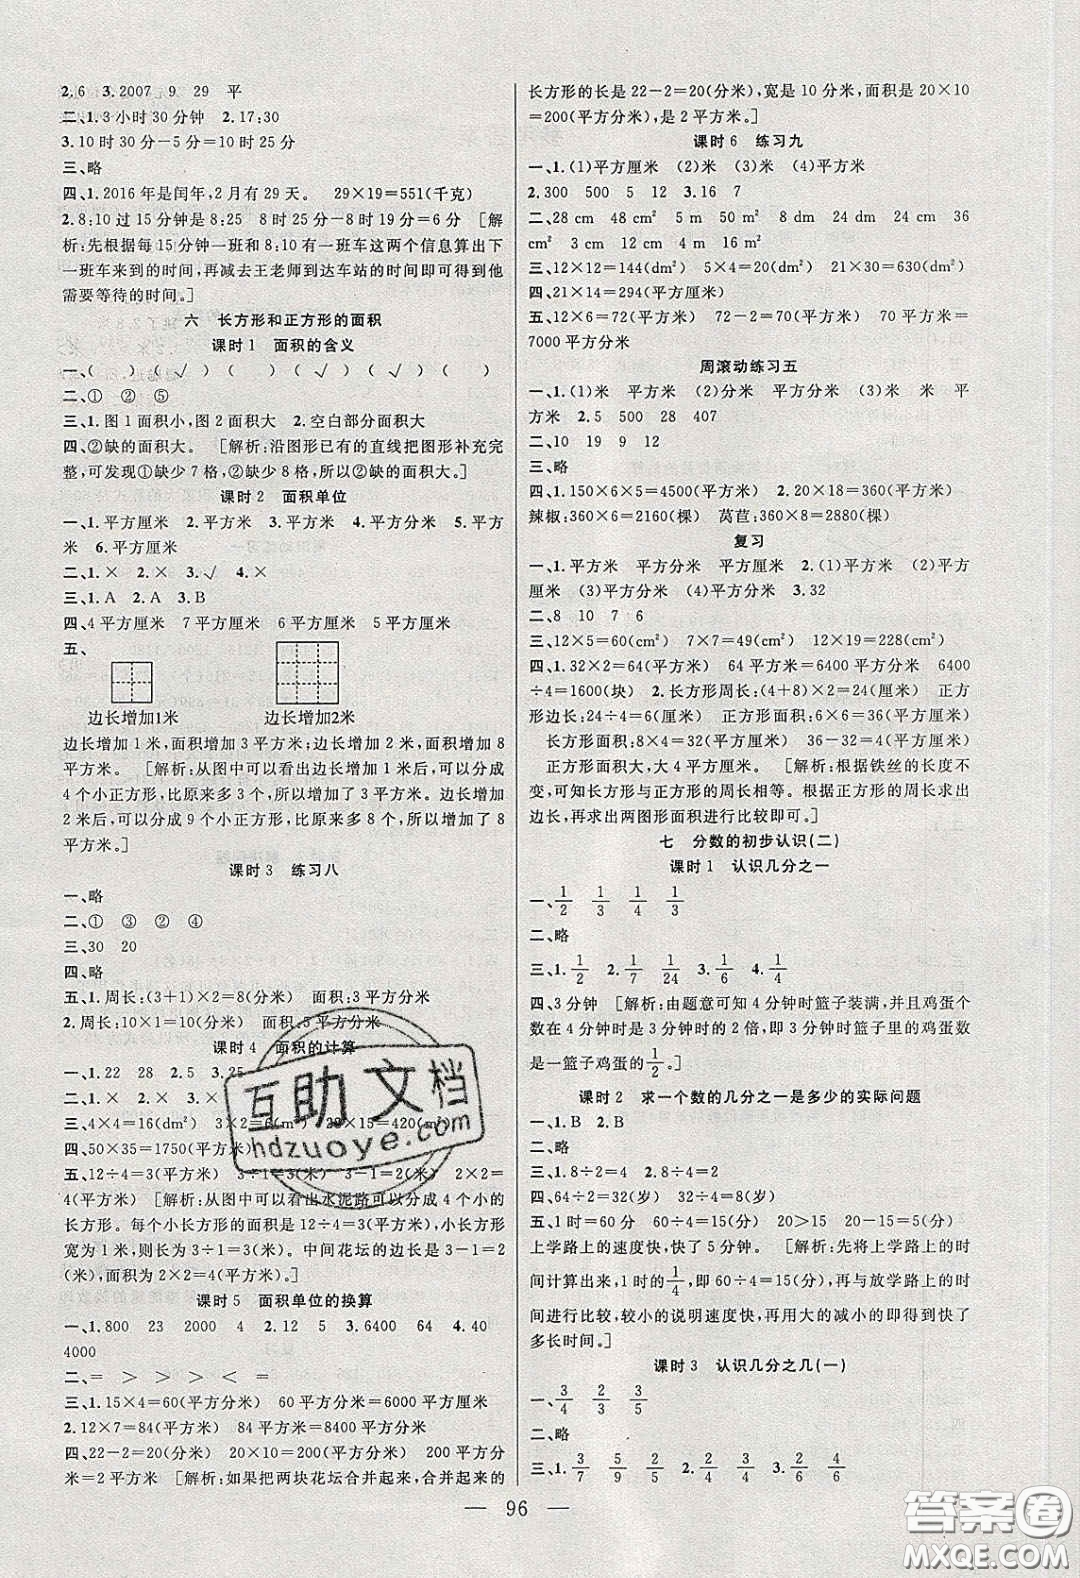 2.6　3.2007　9　29　平
二、1.3小时30分钟　2.17:30
3.10时30分－5分=10时25分
三、略
四、1.2016年是闰年,2月有29天。　29×19=551(千克)
2.8:10过15分钟是8:25　8时25分－8时19分=6分　[解
析:先根据每15分钟一班和8:10有一班车这两个信息算出下
一班车来到的时间,再减去王老师到达车站的时间即可得到他
需要等待的时间。]
六　长方形和正方形的面积
课时1　面积的含义
一、(　)　(√)　(　)　(√)　(　)
二、①　②　⑤
三、1.图1面积小,图2面积大　2.空白部分面积大
四、②缺的面积大。　[解析:沿图形已有的直线把图形补充完
整,可发现①缺少7格,②缺少8格,所以②缺的面积大。]
课时2　面积单位
一、1.平方厘米　2.平方米　3.平方米　4.平方分米　5.平方
米　6.平方厘米
二、1.×　2.×　3.√　4.×
三、1.A　2.A　3.B
四、4平方厘米　7平方厘米　6平方厘米　5平方厘米
五、
边长增加1米　边长增加2米
边长增加1米,面积增加3平方米;边长增加2米,面积增加8
平方米。　[解析:从图中可以看出边长增加1米后,可以分成
4个小正方形,比原来多3个,所以增加了3平方米;边长增加
2米后,可以分成9个小正方形,比原来多8个,所以增加了8
平方米。]
课时3　练习八
一、略
二、①　③　②　④
三、30　20
四、略
五、1.周长:(3+1)×2=8(分米)　面积:3平方分米
2.周长:10×1=10(分米)　面积:5平方分米
课时4　面积的计算
一、1.22　28　2.5　3.25
二、
三、4×4=16(dm²)　3×2=6(m²)　28×15=420(cm²)
四、50×35=1750(平方分米)
五、12÷4=3(平方米)　3÷1=3(米)　3－1=2(米)　2×2=
4(平方米)　[解析:从图中可以看出水泥路可以分成4个小的
长方形。每个小长方形的面积是12÷4=3(平方米),小长方形
宽为1米,则长为3÷1=3(米)。中间花坛的边长是3－1=2
(米),面积为2×2=4(平方米)。]
课时5　面积单位的换算
一、1.800　23　2000　4　2.12　5　3.6400　64　4.40
4000
二、=　＞　＞　＞　＜　=
三、1.15×4=60(平方分米)　60平方分米=6000平方厘米
2.12×7=84(平方米)　84平方米=8400平方分米
四、22－2=20(分米)　20×10=200(平方分米)　200平方分
米=2平方米　[解析:如果把两块花坛合并起来,合并起来的
长方形的长是22－2=20(分米),宽是10分米,面积是20×10
=200(平方分米),是2平方米。]
课时6　练习九
一、1.(1)平方厘米　(2)米　(3)平方米　(4)平方分米
2.300　500　5　12　3.16　7
二、28 cm　48 cm²　5 m　5 m²　20 dm　24 dm　24 cm　36
cm²　3 cm　36 cm²　2 m　12 m　20 dm　25 dm²
三、12×12=144(dm²)　5×4=20(m²)　21×30=630(dm²)
四、21×14=294(平方厘米)
五、12×6=72(平方分米)　72－2=70(平方分米)　70平方分米=
7000平方厘米
周滚动练习五
一、1.(1)米　平方米　(2)分米　平方分米　(3)米　米　平
方米　2.5　500　28　407
二、10　19　9　12
三、略
四、1.150×6×5=4500(平方米)　2.20×18=360(平方米)
辣椒:360×6=2160(棵)　莴苣:360×8=2880(棵)
复习
一、1.平方厘米　平方分米　平方米　2.(1)平方米　(2)平方
厘米　(3)平方分米　(4)平方分米　3.32
二、8　10　7　6
三、12×5=60(cm²)　7×7=49(cm²)　12×19=228(cm²)
四、1.32×2=64(平方米)　64平方米=6400平方分米　6400
÷4=1600(块)　2.长方形周长:(4+8)×2=24(厘米)　正方
形边长:24÷4=6(厘米)　正方形面积:6×6=36(平方厘米)
长方形面积:8×4=32(平方厘米)　36－32=4(平方厘米)
正方形面积大,大4平方厘米。　[解析:根据铁丝的长度不
变,可知长方形与正方形的周长相等。根据周长求出正方形的
边长,再求出两图形面积进行比较即可。]
七　分数的初步认识(二)
课时1　认识几分之一
一、1/2　1/3　1/4　1/3
二、略
三、1.1/2　2.1/7　1/24　3.1/6　4.1/4
四、3分钟　[解析:由题意可知4分钟时篮子装满,并且鸡蛋个
数在4分钟时是3分钟时的2倍,即3分钟时篮子里的鸡蛋数
是一篮子鸡蛋的1/2。]
课时2　求一个数的几分之一是多少的实际问题
一、1.B　2.B
二、略
三、1.8÷2=4　2.8÷4=2
四、64÷2=32(岁)　64÷8=8(岁)
五、1时=60分　60÷4=15(分)　20＞15　20－15=5(分)
上学路上的速度快,快了5分钟。　[解析:先将上学路上的时
间计算出来,1时的1/4,即60÷4=15(分),再与放学路上的时
间进行比较,较小的说明速度快,再用大的减小的即得到快了
多长时间。]
课时3　认识几分之几(一)
一、3/4　2/3　3/5
二、略
三、1.3/7　5/9　2/5　2.2/4　3/4　3.2/6　4/6
— 96 —
互助文档
hdzuoye.com
答案圈
MXQE.COM